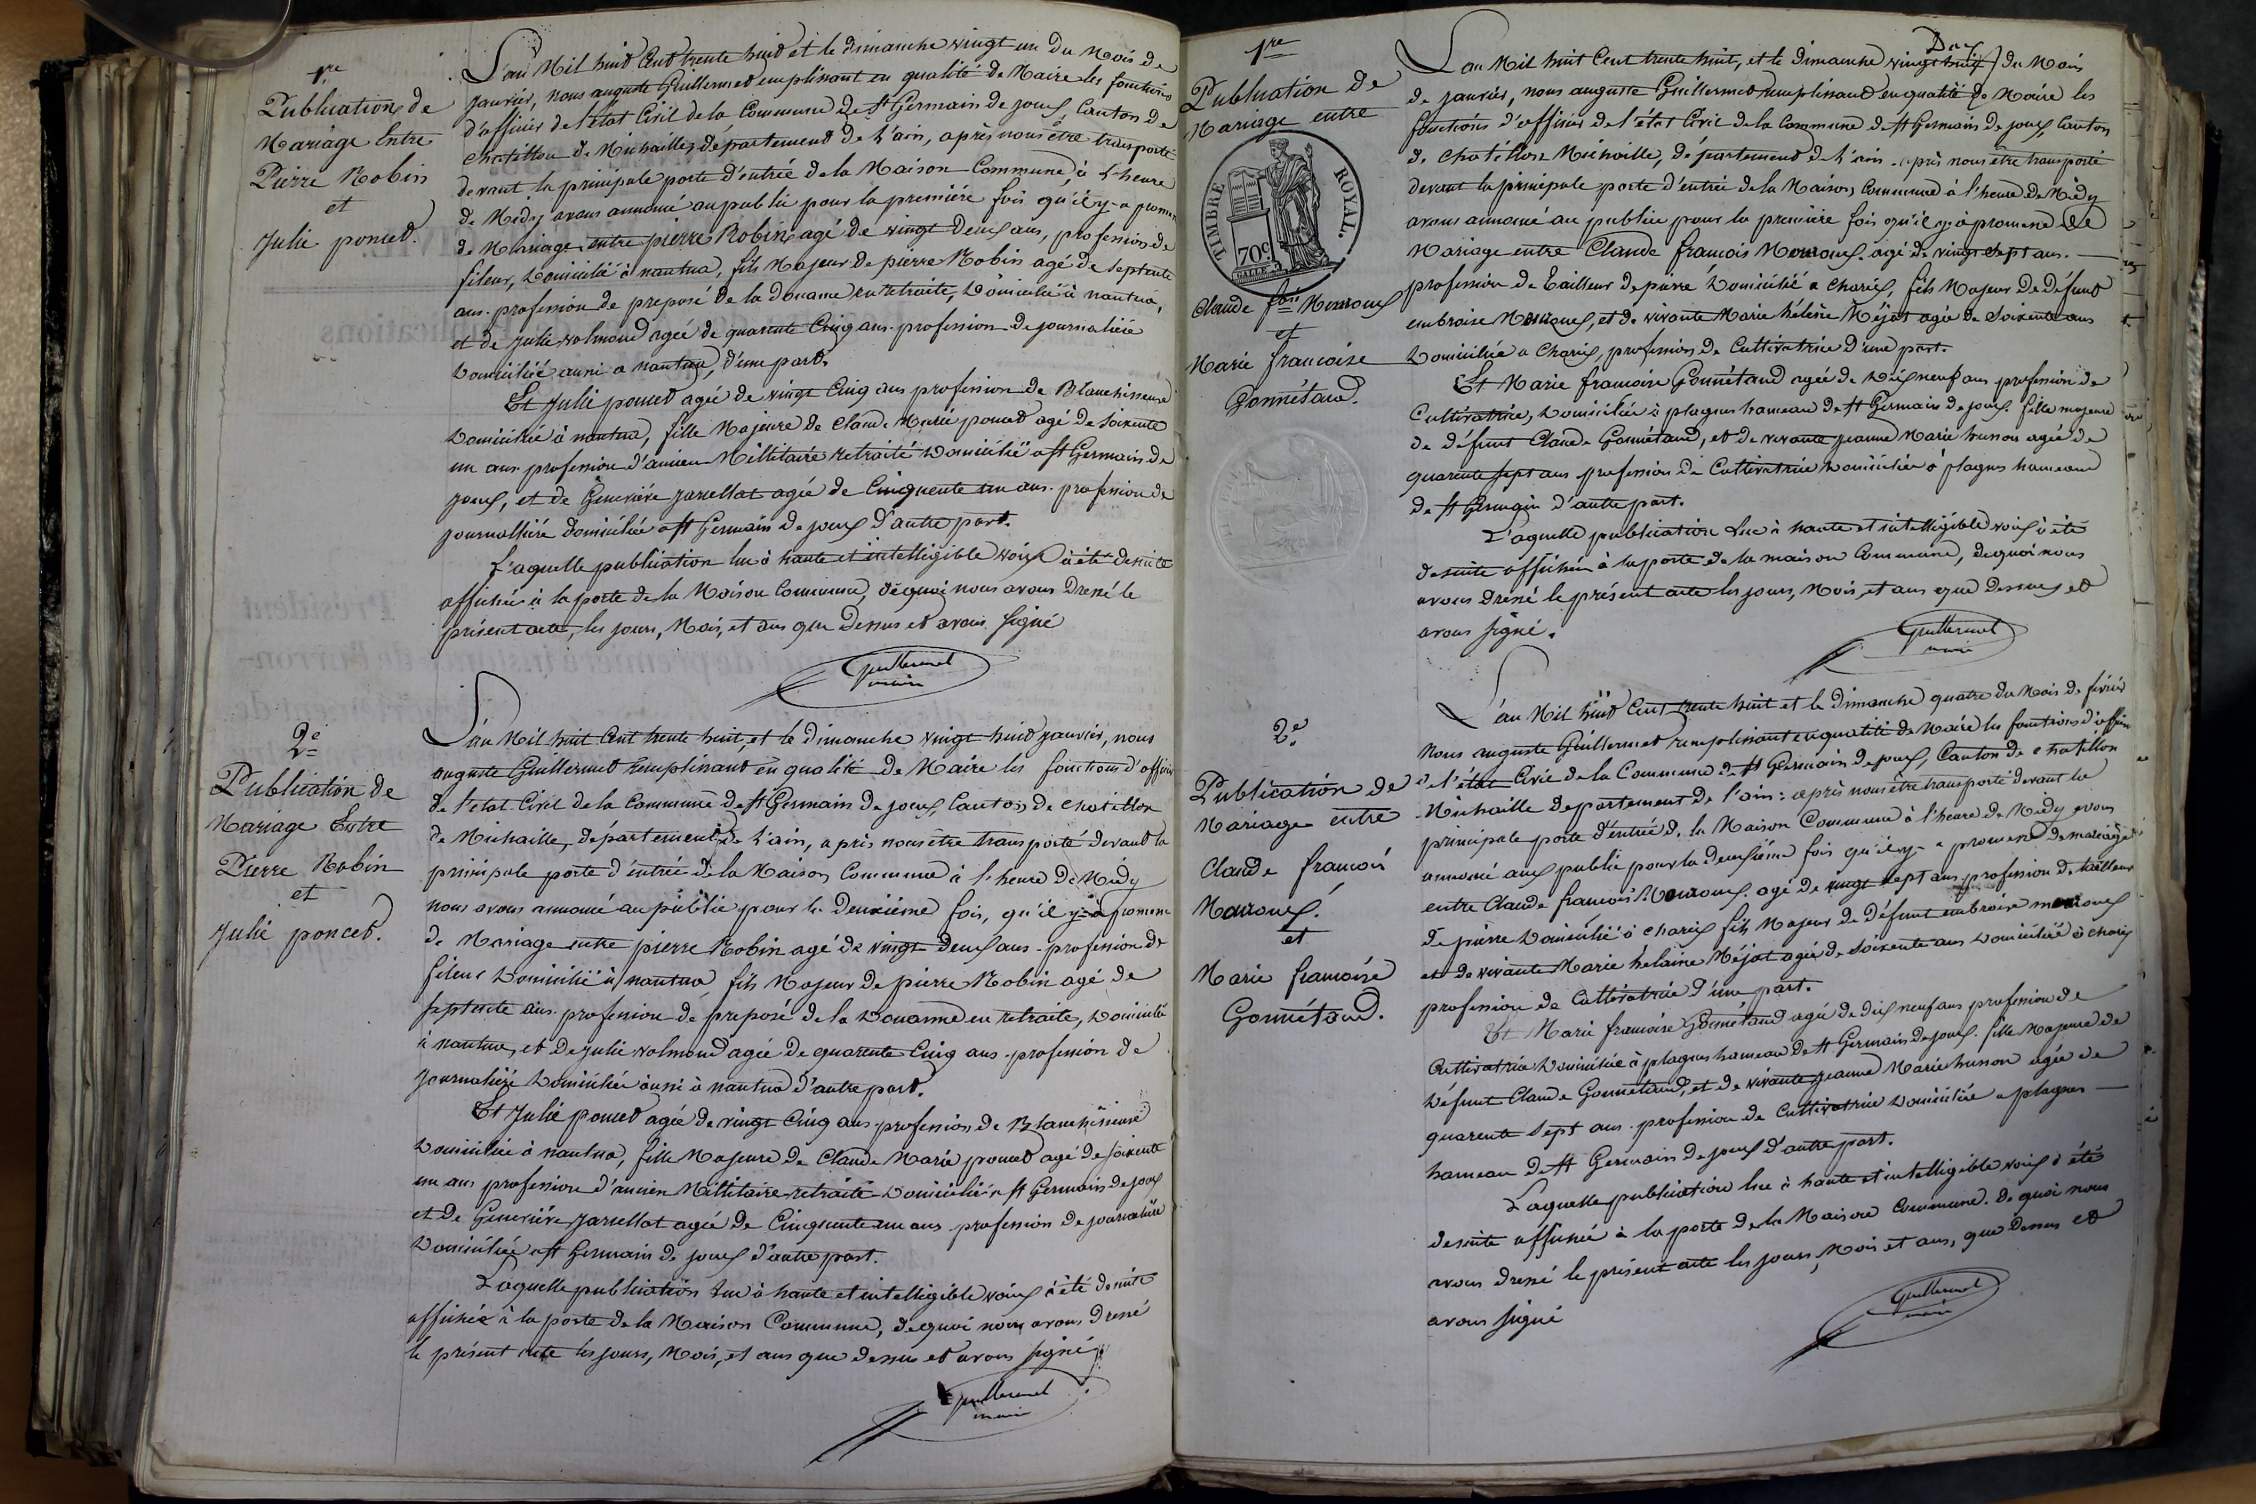 1re
Publication de
Mariage Entre
Pierre Robin
et
Julie poncet.
L'an Mil huit Cent trente huit et le dimanche vingt un du Mois de
janvier, nous auguste Guillermet remplissant en qualité de Maire les fonctions
d'officier de l'état Civil de la Commune de St Germain de joux, Canton de
chatillon de Michaille, département de l'ain, après nous être transporté
devant la principale porte d'entrée de la Maison Commune, à l'heure
de Midy avons annoncé au public pour la première fois qu'il y a promesse
de Mariage entre pierre Robin agé de vingt deux ans, profession de
fileur, Domicilié à nantua, fils Majeur de pierre Robin agé de septente
ans profession de preposé de la douane en retraite, Domicilié à nantua,
et de julie volmond agée de quarente Cinq ans profession de journalière
Domiciliée aussi a nantua, d'une part.
Et Julie poncet agée de vingt Cinq ans profession de Blanchisseuse
Domiciliée à nantua, fille Majeure de Claude Marie poncet agé de soixente
un ans profession d'ancien Millitaire retraité Domicilié a St Germain de
joux, et de Geneviève jarcellat agée de Cinquente un ans profession de
journallière domiciliée a St Germain de joux d'autre part.
L'aquelle publication lue à haute et intelligible voix à été desuite
affichée à la porte de la Maison Commune, de quoi nous avons Dressé le
présent acte, les jours, Mois, et ans que Dessus et avons Signé
Guillermet
maire
2e
Publication de
Mariage Entre
Pierre Robin
et
Julie poncet.
L'an Mil huit Cent trente huit, et le dimanche vingt huit janvier, nous
auguste Guillermet remplissant en qualité de Maire les fonctions d'officier
de l'etat Civil de la Commune de St Germain de joux, Canton de chatillon
de Michaille, département de l'ain, après nous être transporté devant la
principale porte d'entrée de la Maison Commune à l'heure de Midy
nous avons annoncé au public pour la deuxième fois, qu'il y a promesse
de Mariage entre pierre Robin agé de vingt deux ans profession de
fileur Domicilié à nantua fils Majeur de pierre Robin agé de
septente ans profession de preposé de la Douanne en retraite, Domicilié
à nantua, et de julie volmond agée de quarente Cinq ans profession de
journalière Domiciliée aussi à nantua d'autre part.
Et Julie poncet agée de vingt Cinq ans profession de Blanchisseuse
Domiciliée à nantua, fille Majeure de Claude Marie poncet agé de soixente
un ans profession d'ancien Millitaire retraité Domicilié a St Germain de joux
et de Geneviève jarcellat agée de Cinquente un ans profession de journalière
Domiciliée a St Germain de joux d'autre part.
Laquelle publication lue à haute et intelligible voix à été desuite
affichée à la porte de la Maison Commune, de quoi nous avons Dressé
le présent acte les jours, Mois, et ans que dessus et avons signé
Guillermet
maire
1re
Publication de
Mariage entre
TIMBRE ROYAL.
70c
Claude fois Mouroux
et
Marie francoise
Gonnétand.
L'an Mil huit Cent trente huit, et le dimanche vingt huit du Mois
de janvier, nous auguste Guillermet remplissant en qualité de Maire les
fonctions d'officier de l'état Civil de la Commune de St Germain de joux Canton
de chatillon Michaille, département de l'ain après nous être transporté
devant la principale porte d'entrée de la Maison Commune à l'heure de Midy
avons annoncé au public pour la première fois qu'il y à promesse de
Mariage entre Claude francois Mouroux agé de vingt sept ans.
profession de tailleur de pierre Domicilié a Charix, fils Majeur de défunt
embroise Mouroux, et de vivante Marie hélène Méjat agée de soixente ans
Domiciliée a Charix, profession de Cultivatrice d'une part.
Et Marie francoise Gonnétand agée de dix neuf ans profession de
Cultivatrice, Domiciliée à plagnes hameau de St Germain de joux fille majeure
de défunt Claude Gonnétand, et de vivante jeanne Marie husson agée de
quarente sept ans profession de Cultivatrice Domiciliée à plagnes hameau
de St Germain d'autre part.
L'aquelle publication Lue à haute et intelligible voix à été
desuite affichée à la porte de la maison Commune, de quoi nous
avons Dressé le présent acte les jours, Mois, et ans que Dessus et
avons signé.
Guillermet
maire
2e
Publication de
Mariage entre
Claude francois
Mouroux.
et
Marie francoise
Gonnétand.
L'an Mil huit Cent trente huit et le dimanche quatre du Mois de février
Nous auguste Guillermet remplissant en qualité de Maire les fonctions d'officier
de l'état Civil de la Commune de St Germain de joux, Canton de chatillon
Michaille département de l'ain: après nous être transporté devant la
principale porte d'entrée de la Maison Commune à l'heure de Midy avons
annoncé aux public pour la deuxième fois qu'il y a promesse de mariage
entre Claude francois Mouroux agé de vingt sept ans profession de tailleur
de pierre Domicilié à charix fils Majeur de défunt embroise mouroux
et de vivante Marie hélaine Méjat agée de soixente ans Domiciliée à charix
profession de Cultivatrice d'une part.
Et Marie francoise Gonnétand agée de dix neuf ans profession de
Cultivatrice Domiciliée à plagnes hameau de St Germain de joux fille Majeure de
défunt Claude Gonnétand, et de vivante jeanne Marie husson agée de
quarente sept ans profession de Cultivatrice Domiciliée a plagnes
hameau de St Germain de joux d'autre part.
Laquelle publication lue à haute et intelligible voix à été
desuite affichée à la porte de la Maison Commune de quoi nous
avons dressé le présent acte les jours, Mois et ans, que Dessus et
avons signé
Guillermet
maire